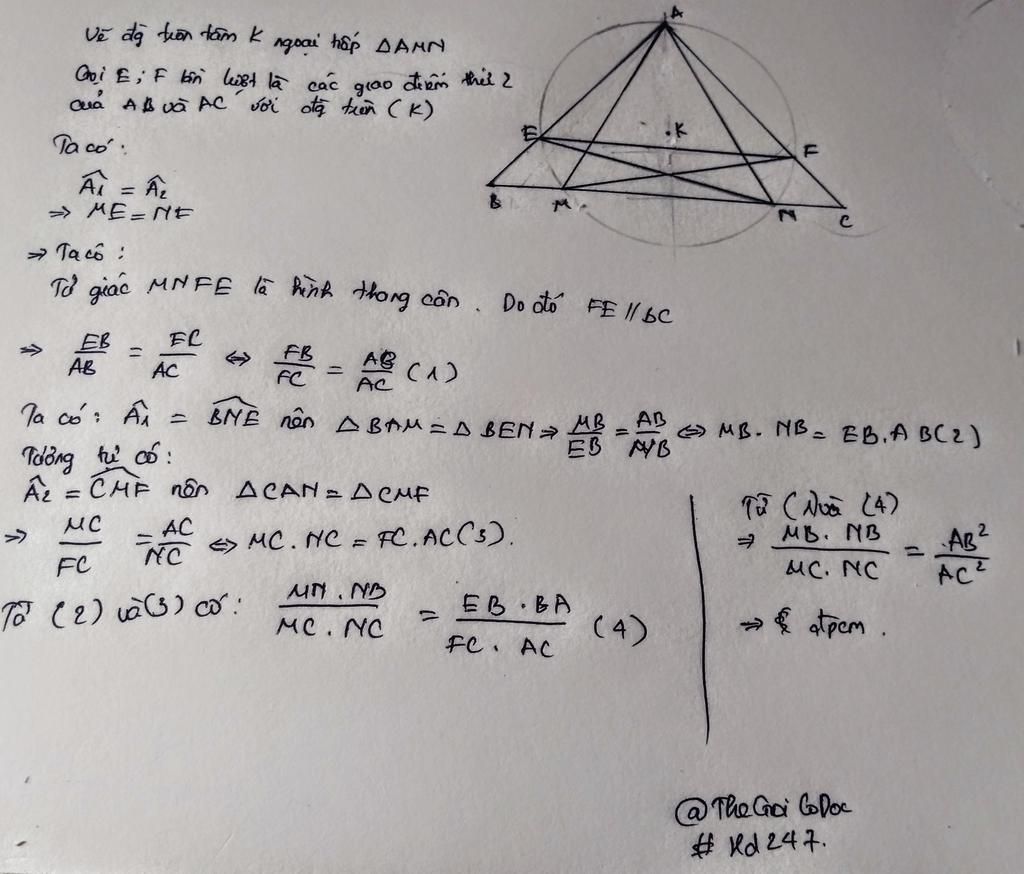 Vẽ đg tròn tâm K ngoại tiếp ΔAMN
Gọi E; F lần lượt là các giao điểm thứ 2
của AB và AC với đg tròn (K)
Ta có:
Â1 = Â2
⇒ ME = NF
⇒ Ta có:
Tứ giác MNFE là hình thang cân. Do đó FE // BC
⇒ EB/AB = FC/AC ⇔ FB/FC = AB/AC (1)
Ta có: Â1 = BNE nên ΔBAM = ΔBEN ⇒ MB/EB = AB/NB ⇔ MB. NB = EB. AB(2)
Tương tự có:
Â2 = CMF nên ΔCAN = ΔCMF
⇒ MC/FC = AC/NC ⇔ MC. NC = FC. AC(3).
Từ (2) và(3) có: MN . NB/MC. NC = EB . BA/FC. AC (4)
Từ (1) và (4)
⇒ MB. NB/MC. NC = AB²/AC²
⇒ đpcm.
A
E
K
F
B
M
N
C
@TheGioi CoDoc
# Hd247.